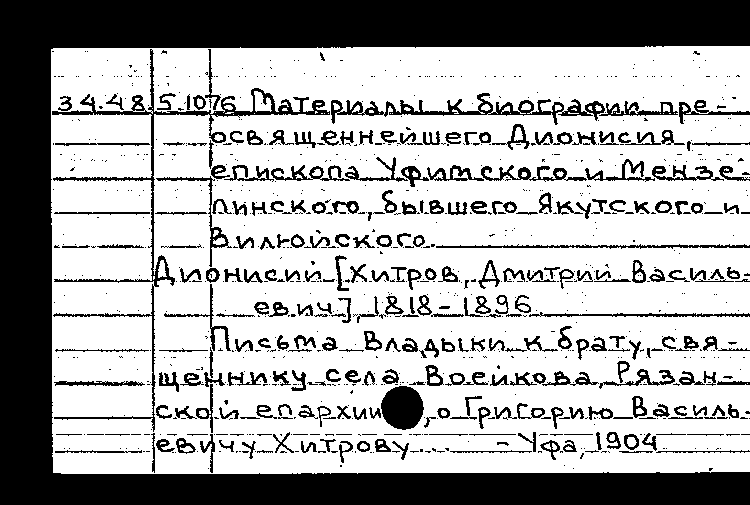 34.48.5.1076 Материалы к биографии пре-
освященнейшего Дионисия,
епископа Уфимского и Мензе-
линского, бывшего Якутского и
Вилюйского.
Дионисий [Хитров, Дмитрий Василь-
евич], 1818-1896.
Письма Владыки к брату, свя-
щеннику села Воейкова, Рязан-
ской епархии, о Григорию Василь-
евичу Хитрову... - Уфа, 1904